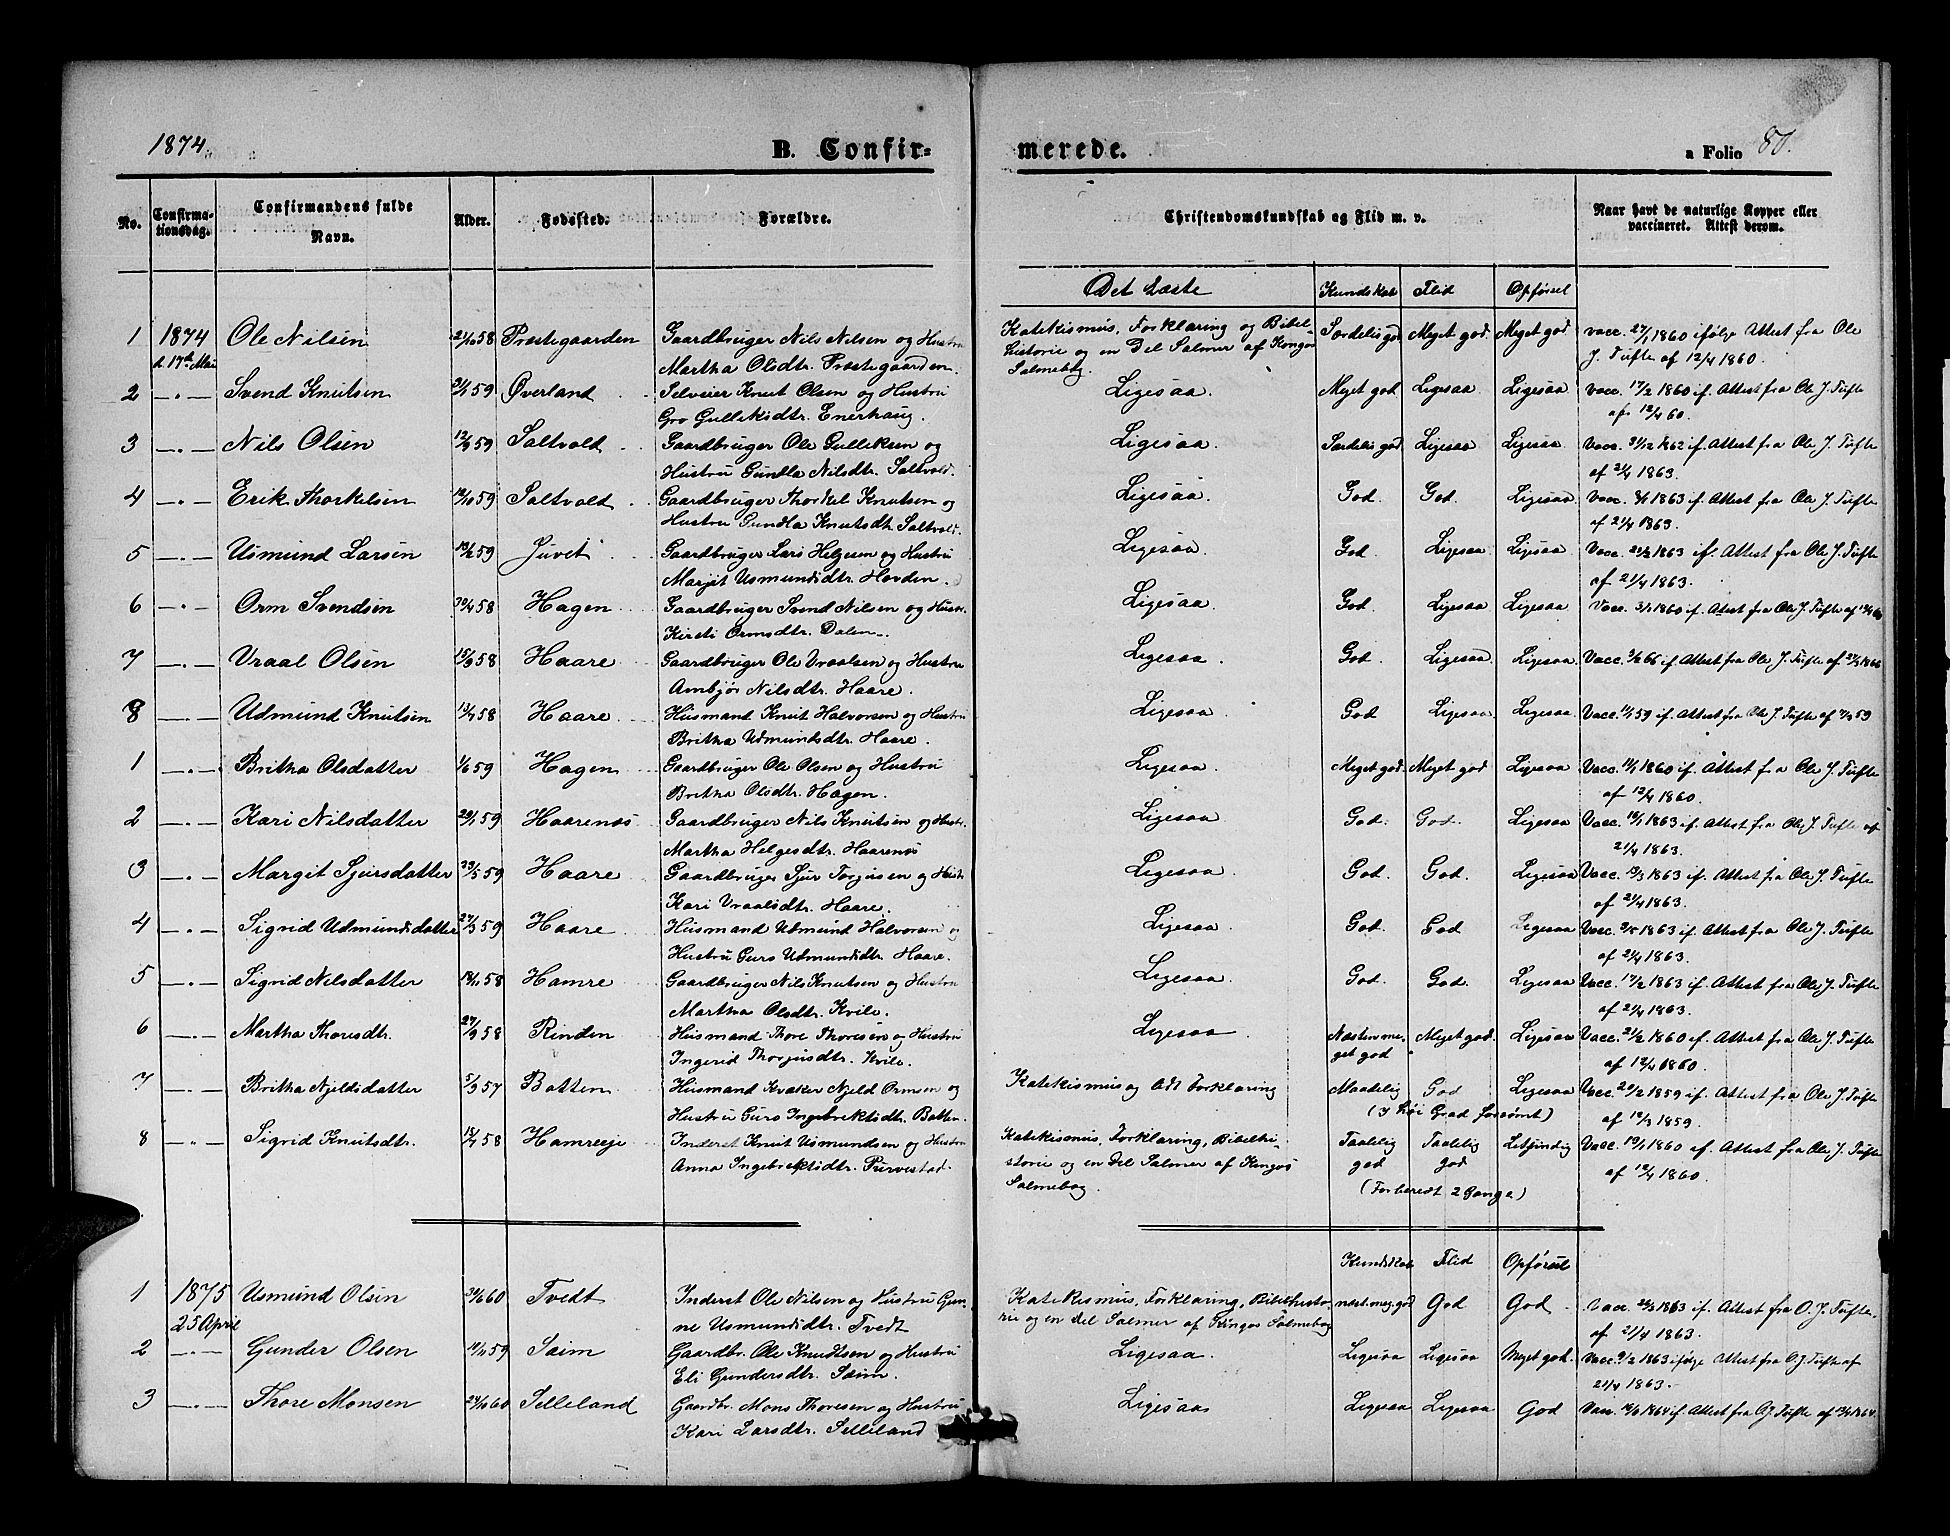 1874.
B. Confir=
merede.
a Folio 80.
No.
Confirma-
tionsdag.
Confirmandens fulde
Navn.
Alder.
Fødested.
Forældre.
Christendomskundskab og Flid m. v.
Naar havt de naturlige Kopper eller
vaccineret. Attest derom.
Det Læste Kundskab Flid Opførsel
1 1874 Ole Nilsen 58 Præstegaarden Gaardbruger Nils Nilsen og Hustru Katekismus, Forklaring og Bibel- Særdeles god Meget god Meget god vacc. 27/1 1860 ifølge Attest fra Ole
d. 17de Mai Martha Olsdtr. Præstegaarden. historie og en Del Salmer af Kingos J. Tufte af 12/4 1860.
Salmebog.
2 —"— Svend Knutsen 59 Øverland Selveier Knut Olsen og Hustru Ligesaa. Meget god Ligesaa Ligesaa vacc. 17/2 1860 if. Attest fra Ole J. Tufte
Gro Gulleksdtr. Enerhaug. af 12/4 60.
3 —"— Nils Olsen 12/9 59 Saltvold Gaardbruger Ole Gulleksen og Ligesaa. Særdeles god Ligesaa Ligesaa. Vacc. 1862 if. Attest fra Ole J. Tufte
Hustru Gunlla Nilsdtr. Saltvold. af 21/4 1863.
4 —"— Erik Thorkelsen 12/10 59 Saltvold Gaardbruger Thorkel Knutsen og Ligesaa. God. God. Ligesaa Vacc. 1863 if. Attest fra Ole J. Tufte
Hustru Gunlla Knutsdtr. Saltvold. af 21/4 1863.
5 —"— Usmund Larsen 59 Juvet Gaardbruger Lars Helgesen og Hustru Ligesaa. God. Ligesaa Ligesaa Vacc. 1863 if. Attest fra Ole J. Tufte
Margit Usmundsdtr. Hovden. af 21/4 1863.
6 —"— Orm Svendsen 30/4 58 Hagen Gaardbruger Svend Nilsen og Hustr. Ligesaa. God. Ligesaa Ligesaa Vacc. 1860 if. Attest fra Ole J. Tufte af 12/4 60
Kirsti Ormsdtr. Dalen.
7 —"— Vraal Olsen 15/9 58 Haare Gaardbruger Ole Vraalsen og Hustru Ligesaa. God. Ligesaa. Ligesaa. Vacc. 66 if. Attest fra Ole J. Tufte af 1866
Ambjør Nilsdtr. Haare.
8 —"— Udmund Knutsen 58 Haare Husmand Knut Halvorsen og Hustru Ligesaa. God Ligesaa. Ligesaa. Vacc. 59 if. Attest fra Ole J. Tufte af 59
Britha Udmundsdtr. Haare.
1 —"— Britha Olsdatter 1/6 59 Hagen Gaardbruger Ole Olsen og Hustru Ligesaa. Meget god. Meget god Ligesaa Vacc. 1860 if. Attest fra Ole J. Tufte
Britha Olsdtr. Hagen. af 12/4 1860.
2 —"— Kari Nilsdatter 59 Haarenæs Gaardbruger Nils Knutsen og Hustr. Ligesaa God. God. Ligesaa Vacc. 1863 if. Attest fra Ole J. Tufte af
Martha Helgesdtr. Haarenæs 21/4 1863.
3 —"— Margit Sjursdatter 23/5 59 Haare Gaardbruger Sjur Torgusen og Hustr. Ligesaa. God. God. Ligesaa Vacc. 1863 if. Attest fra Ole J. Tufte
Kari Vraalsdtr. Haare. af 21/4 1863.
4 —"— Sigrid Udmundsdatter 27/3 59 Haare Husmand Udmund Halvorsen og Ligesaa. God. God Ligesaa Vacc. 1863 if. Attest fra Ole J. Tufte
Hustru Guro Udmundsdtr. Haare. af 21/4 1863.
5 —"— Sigrid Nilsdatter 18/11 58 Hamre Gaardbruger Nils Knutsen og Hustru Ligesaa. God. God. Ligesaa Vacc. 17/2 1863 if. Attest fra Ole J. Tufte
Martha Olsdtr. Kvile. af 21/4 1863.
6 —"— Martha Thoresdtr. 27/9 58 Rinden Husmand Thore Thoresen og Hustru Ligesaa Næsten me- Meget god. Ligesaa Vacc. 21/2 1860 if. Attest fra Ole J. Tufte
Ingerid Thorjusdtr. Kvile. get god af 12/4 1860.
7 —"— Britha Njeldsdatter 5/9 57 Botten Husmand Kvæker Njeld Ormsen og Katekismus og Forklaring Maadelig God Ligesaa Vacc. 20/2 1859 if. Attest fra Ole J. Tufte
Hustru Guro Ingebrektsdtr. Botten. (I høi Grad forsømt) af 12/3 1859.
8 —"— Sigrid Knutsdtr. 58 Hamreeje Inderst Knut Usmundsen og Hustru Katekismus, Forklaring, Bibelhi- Taalelig Taalelig Letsindig Vacc. 19/1 1860 if. Attest fra Ole J. Tufte
Anna Ingebrektsdtr. storie og en Del Salmer af Kingos god god af 12/4 1860.
Salmebog. (Forberedt 2 Gange)
Kundskab Flid Opførsel
1 1875 Usmund Olsen 60 Tvedt Inderst Ole Nilsen og Hustru Gun- Katekismus, Forklaring, Bibelhisto- næst. meg. god God God Vacc. 1863 if. Attest fra O. J. Tufte
25 April ne Usmundsdtr. Tvedt rie og en Del Salmer af Kingos Salmebog af 21/4 1863.
2 —"— Gunder Olsen 59 Saim Gaardbr. Ole Knudtsen og Hustru Ligesaa. Ligesaa Ligesaa Meget god. Vacc. 9/2 1863 ifølge Attest fra O. J. Tufte af
Eli Gundersdtr. Saim. 21/4 1863.
3 —"— Thore Monsen 60 Selleland Gaardbr. Mons Thoresen og Hustru Ligesaa Ligesaa Ligesaa God Vacc. 1864 if. Attest fra O. J. Tufte af 1864.
Kari Larsdtr. Selleland